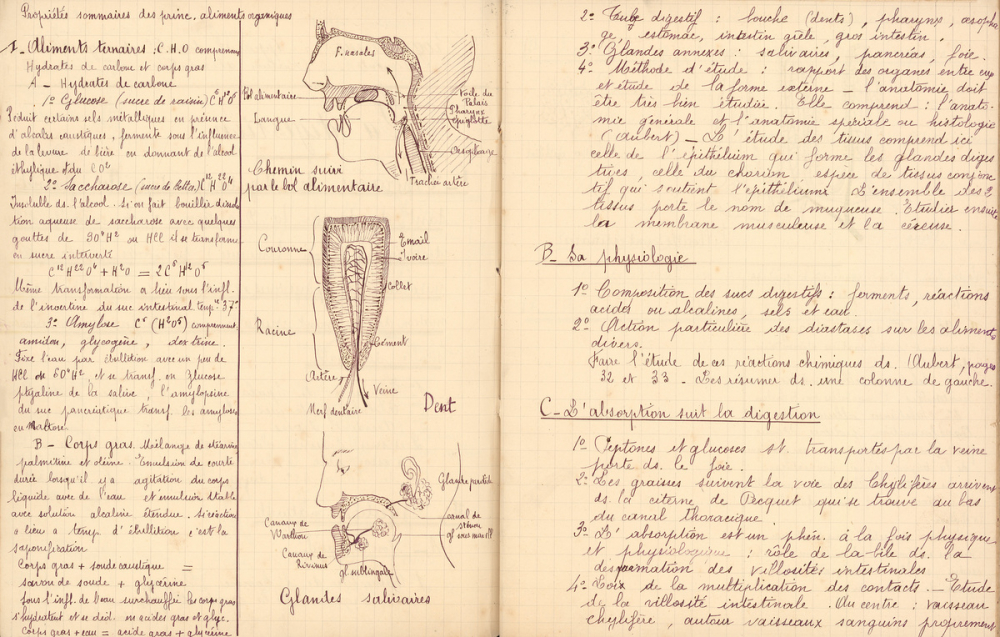 Propriétés sommaires des princ. aliments organiques
I - Aliments ternaires : C.H.O comprennent
Hydrates de carbone et corps gras
A - Hydrates de carbone
1º Glucose (sucre de raisin) C⁶H¹²O⁶
Réduit certains sels métalliques en présence
d'alcalis caustiques, fermente sous l'influence
de la levure de bière en donnant de l'alcool
éthylique et du CO²
2º Saccharose (sucre de bett.) C¹²H²²O¹¹
Insoluble ds. l'alcool. Si on fait bouillir dissolu
tion aqueuse de saccharose avec quelques
gouttes de SO⁴H² ou HCl il se transforme
en sucre interverti
+ H²O = 2C⁶H¹²O⁶
Même transformation a lieu sous l'infl.
de l'invertine du suc intestinal temp. 37º
3º Amylose (H²O⁵) comprennent
amidon, glycogène, dextrine.
l'eau par ébullition avec un peu de
HCl ou SO⁴H² et se transf. en glucose
ptyaline de la salive, l'amylopsine
du suc pancréatique transf. les amyloses
en maltose
B - Corps gras. Mélange de stéarine
palmitine et oléine. Emulsion de courte
durée lorsqu'il y a agitation du corps
liquide avec de l'eau et émulsion stable
avec solution alcaline étendue si réaction
a lieu à temp. d'ébullition c'est la
saponification
Corps gras + soude caustique =
savon de soude + glycérine
Sous l'infl. de l'eau surchauffée les corps gras
s'hydratent et se déd. en acides gras et glyc.
Corps gras + eau = acide gras + glycérine
F. nasales
Bol alimentaire
Langue
Voile du
Palais
épiglotte
Oesophage
Trachée artère
Chemin suivi
par le bol alimentaire
Couronne
Email
Ivoire
Collet
Racine
Cément
Artère
Veine
Nerf dentaire
Dent
Glande parotide
canal de
sténon
gl sous maxill
Canaux de
Warthon
Canaux de
Rivinus
gl. sublinguale
Glandes salivaires
2º Tube digestif : bouche (dents), pharynx, œsopha
ge, estomac, intestin grêle, gros intestin.
3º Glandes annexes : salivaires, pancréas, foie.
4º Méthode d'étude : rapport des organes entre eux
et étude de la forme externe - l'anatomie doit
être très bien étudiée. Elle comprend : l'anato-
mie générale et l'anatomie spéciale ou histologie
(Aubert) - L'étude des tissus comprend ici
celle de l'épithélium qui forme les glandes diges
tives, celle du chorion, espèce de tissus conjonc
tif qui soutient l'épithélium. L'ensemble des 2
tissus porte le nom de muqueuse. Etudier ensuite
la membrane musculeuse et la séreuse.
B - Sa physiologie
1º Composition des sucs digestifs : ferments, réactions
acides ou alcalines, sels et eau.
2º Action particulière des diastases sur les aliments
divers.
Faire l'étude de ces réactions chimiques ds. Aubert, pages
32 et 33 - Les résumer ds. une colonne de gauche.
C - L'absorption suit la digestion
1º Peptones et glucoses st. transportés par la veine
porte ds. le foie.
2º Les graisses suivent la voie des chylifères arrivent
ds. la citerne de Pecquet qui se trouve au bas
du canal thoracique
3º L'absorption est un phén. à la fois physique
et physiologique : rôle de la bile ds. la
des villosités intestinales
4º Loix de la multiplication des contacts. - Etude
de la villosité intestinale. Au centre : vaisseau
chylifère, autour vaisseaux sanguins proprement